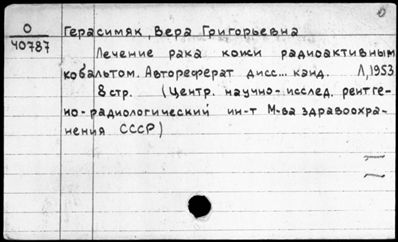 О
40787
Герасимяк, Вера Григорьевна
Лечение рака кожи радиоактивным
кобальтом. Автореферат дисс... канд. Л, 1953
8 стр. (Центр. научно-исслед. рентге-
но-радиологический ин-т М-ва здравоохра-
нения СССР)